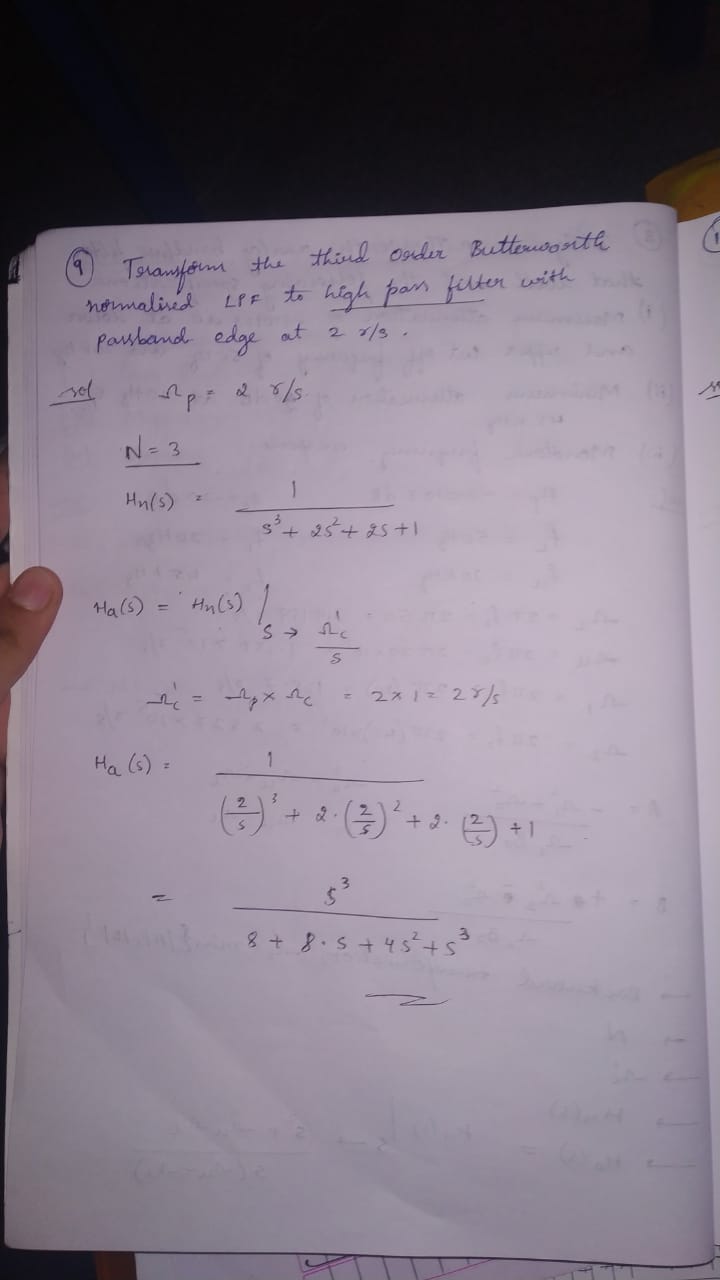 9 Transform the third order Butterworth
normalised LPF to high pass filter with
passband edge at 2 r/s.
sol Ωp = 2 r/s.
N = 3
Hn(s) = 1 / (s³ + 2s² + 2s + 1)
Ha(s) = Hn(s) | s → Ωc' / s
Ωc' = Ωp × Ωc = 2 × 1 = 2 r/s
Ha(s) = 1 / ((2/s)³ + 2·(2/s)² + 2·(2/s) + 1)
= s³ / (8 + 8·s + 4s² + s³)